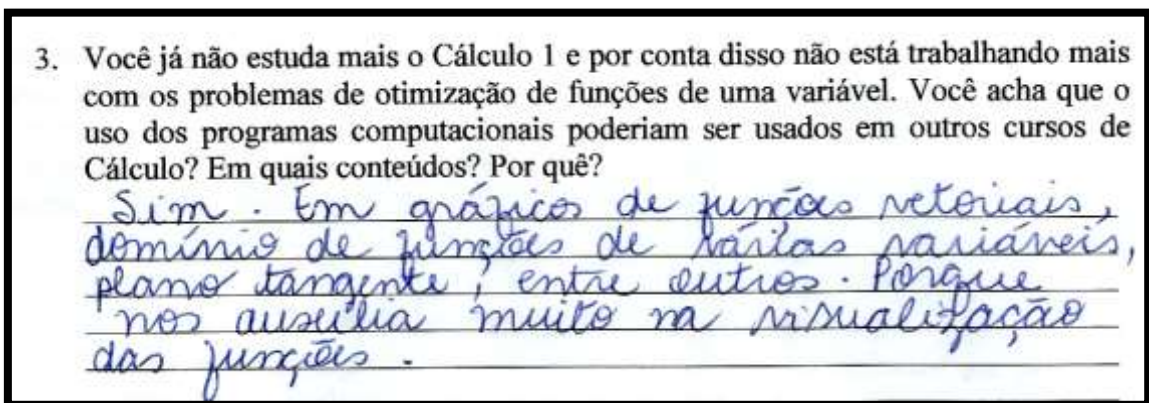 3. Você já não estuda mais o Cálculo 1 e por conta disso não está trabalhando mais
com os problemas de otimização de funções de uma variável. Você acha que o
uso dos programas computacionais poderiam ser usados em outros cursos de
Cálculo? Em quais conteúdos? Por quê?
Sim. Em gráficos de funções vetoriais,
domínio de funções de várias variáveis,
plano tangente, entre outros. Porque
nos auxilia muito na visualização
das funções.